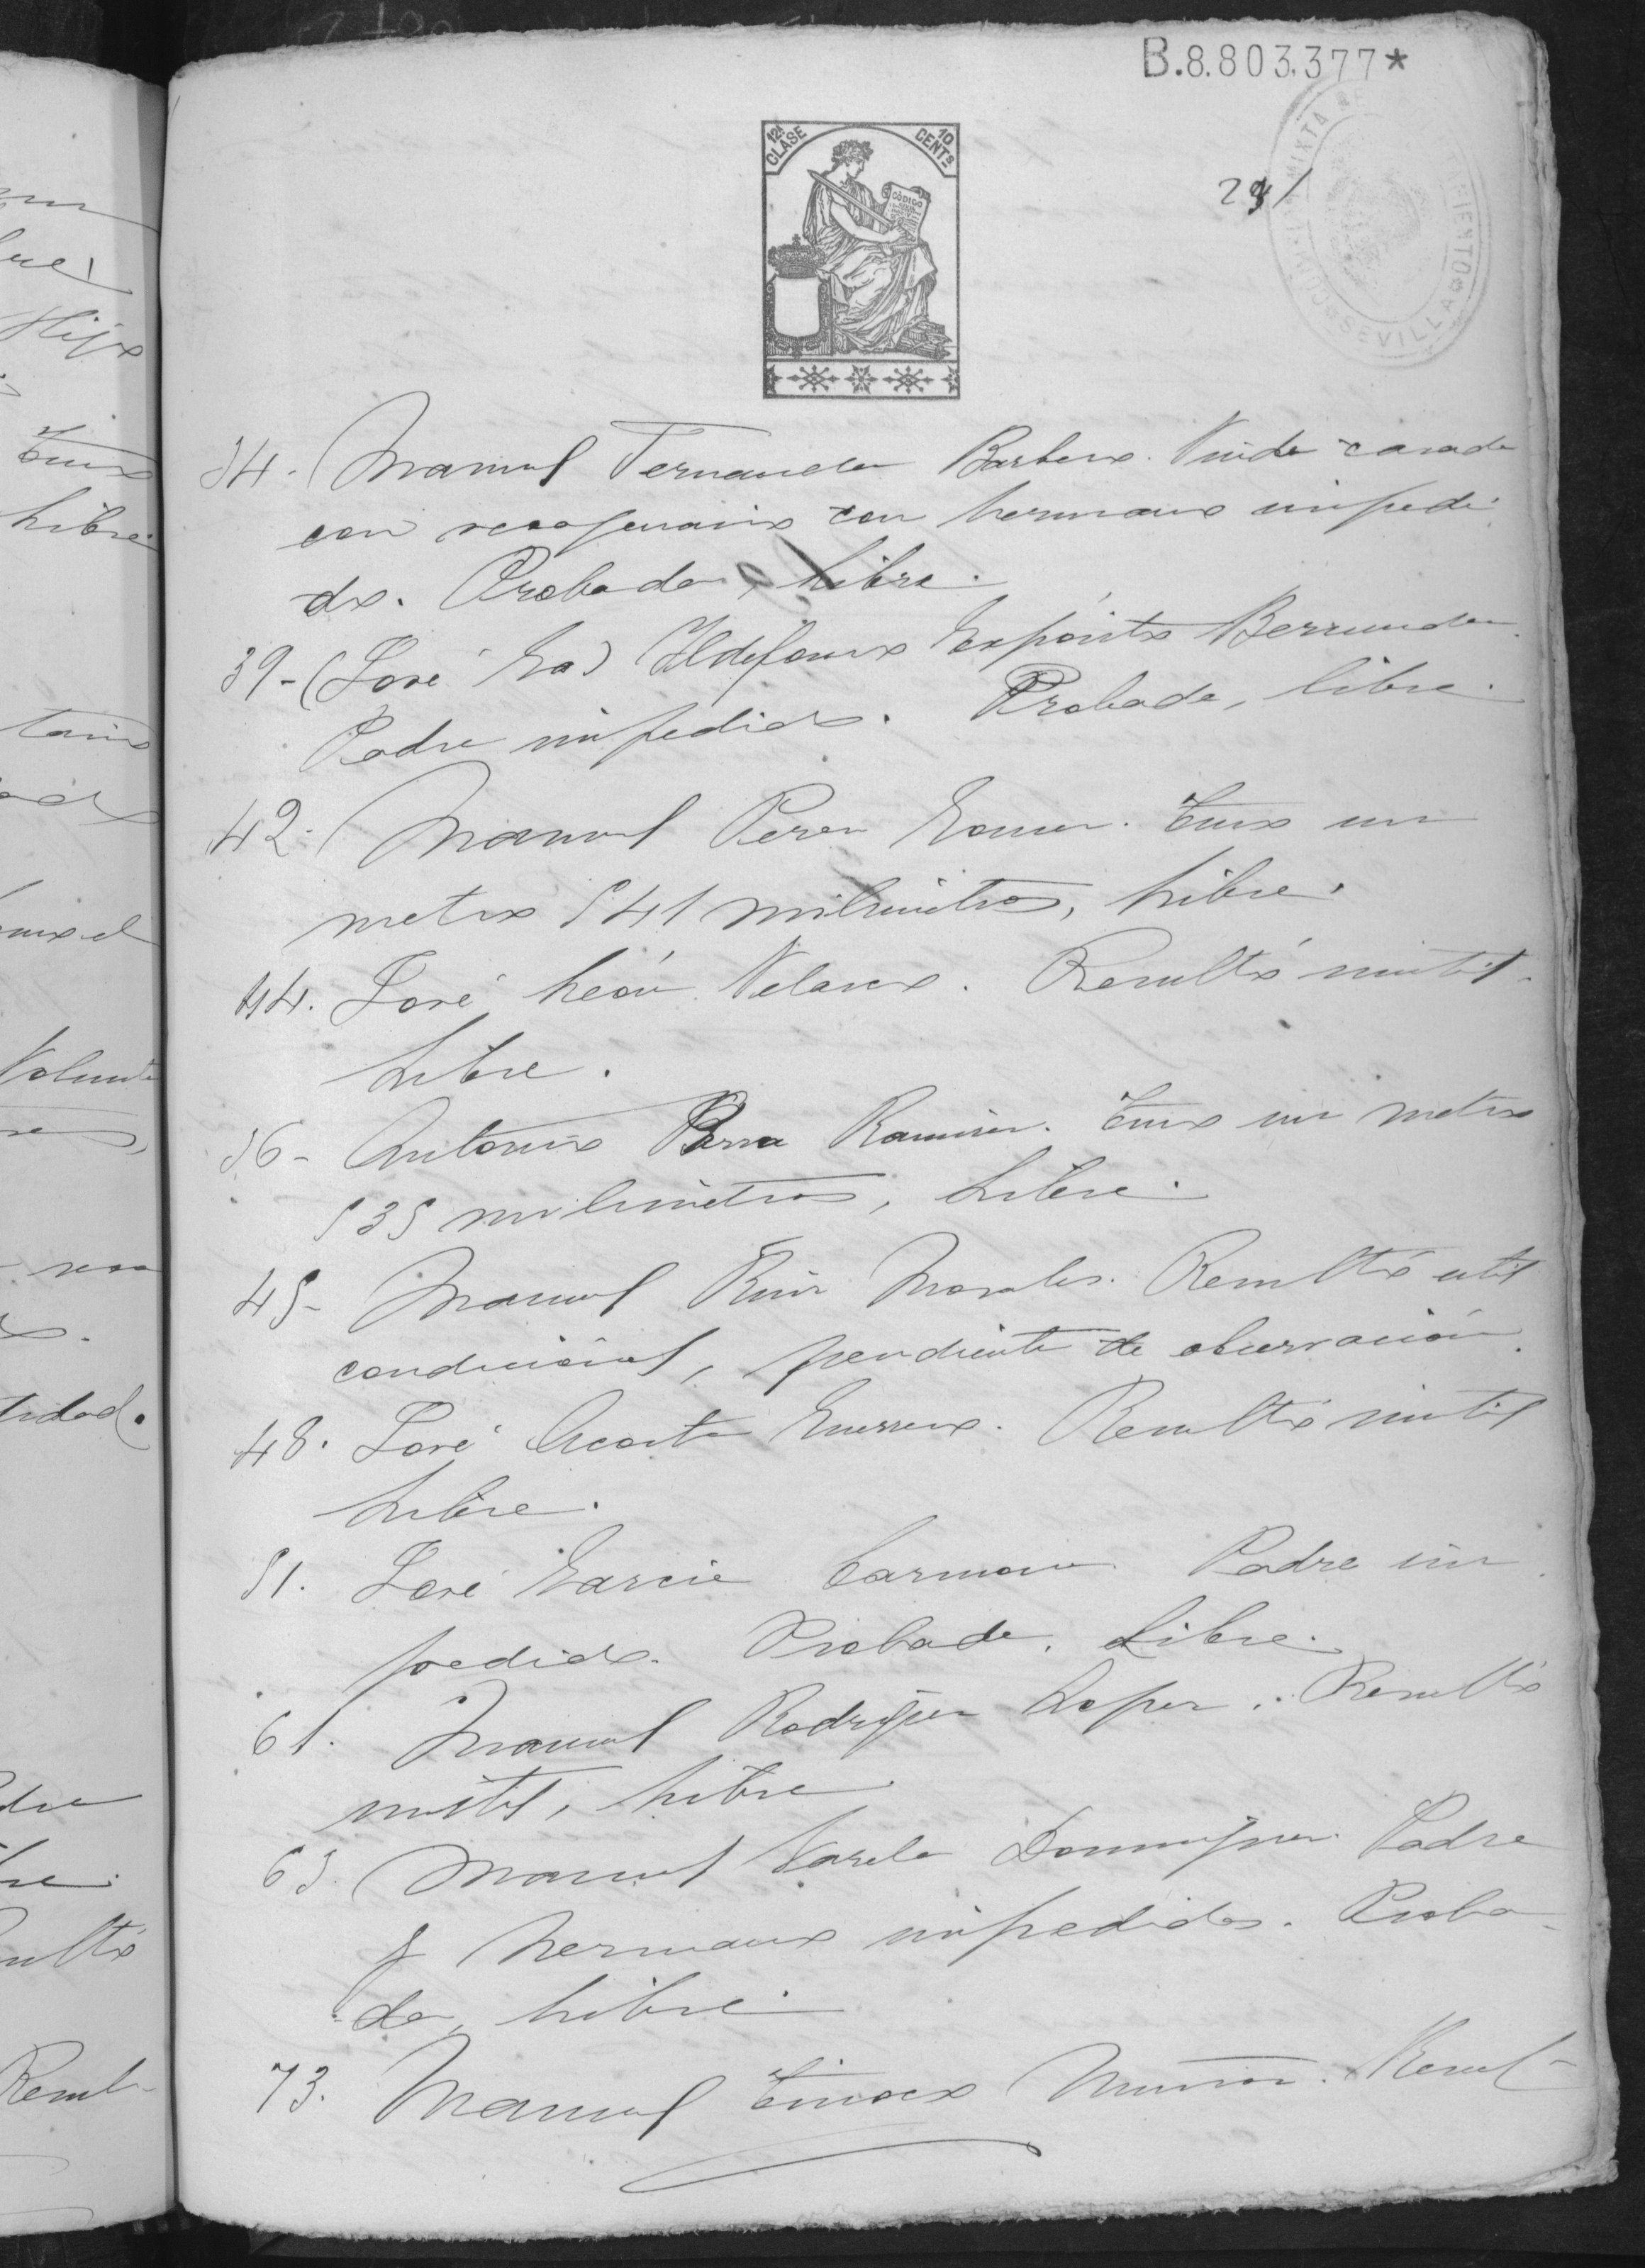 B.8.803.377*
12ª CLASE
10 CENTs
CÓDIGO
291
MIXTA DE
SEVILLA
34. Manuel Fernandez Barbero. Viuda casada
con sexagenario con hermano impedi
do. Probada, libre.
39- (José Ga) Ildefonso Expósito Bermudez
Padre impedido. Probada, libre.
42- Manuel Perez Gomez. Tuvo un
metro 541 milimetros, libre.
44. José León Velasco. Resultó inutil-
Libre.
56- Antonio Parra Ramirez. Tuvo un metro
535 milimetros, Libre.
45- Manuel Ruiz Morales. Resultó util
condicional, pendiente de observación.
48. José Acosta Guerrero. Resultó inutil
Libre.
51. José Garcia Carmona. Padre im
pedido. Probada. Libre.
61. Manuel Rodriguez Lopez. Resultó
inutil, libre
65. Manuel Varela Dominguez. Padre
y hermano impedidos. Proba-
da, libre.
73. Manuel Tinoco Muñoz. Resul-